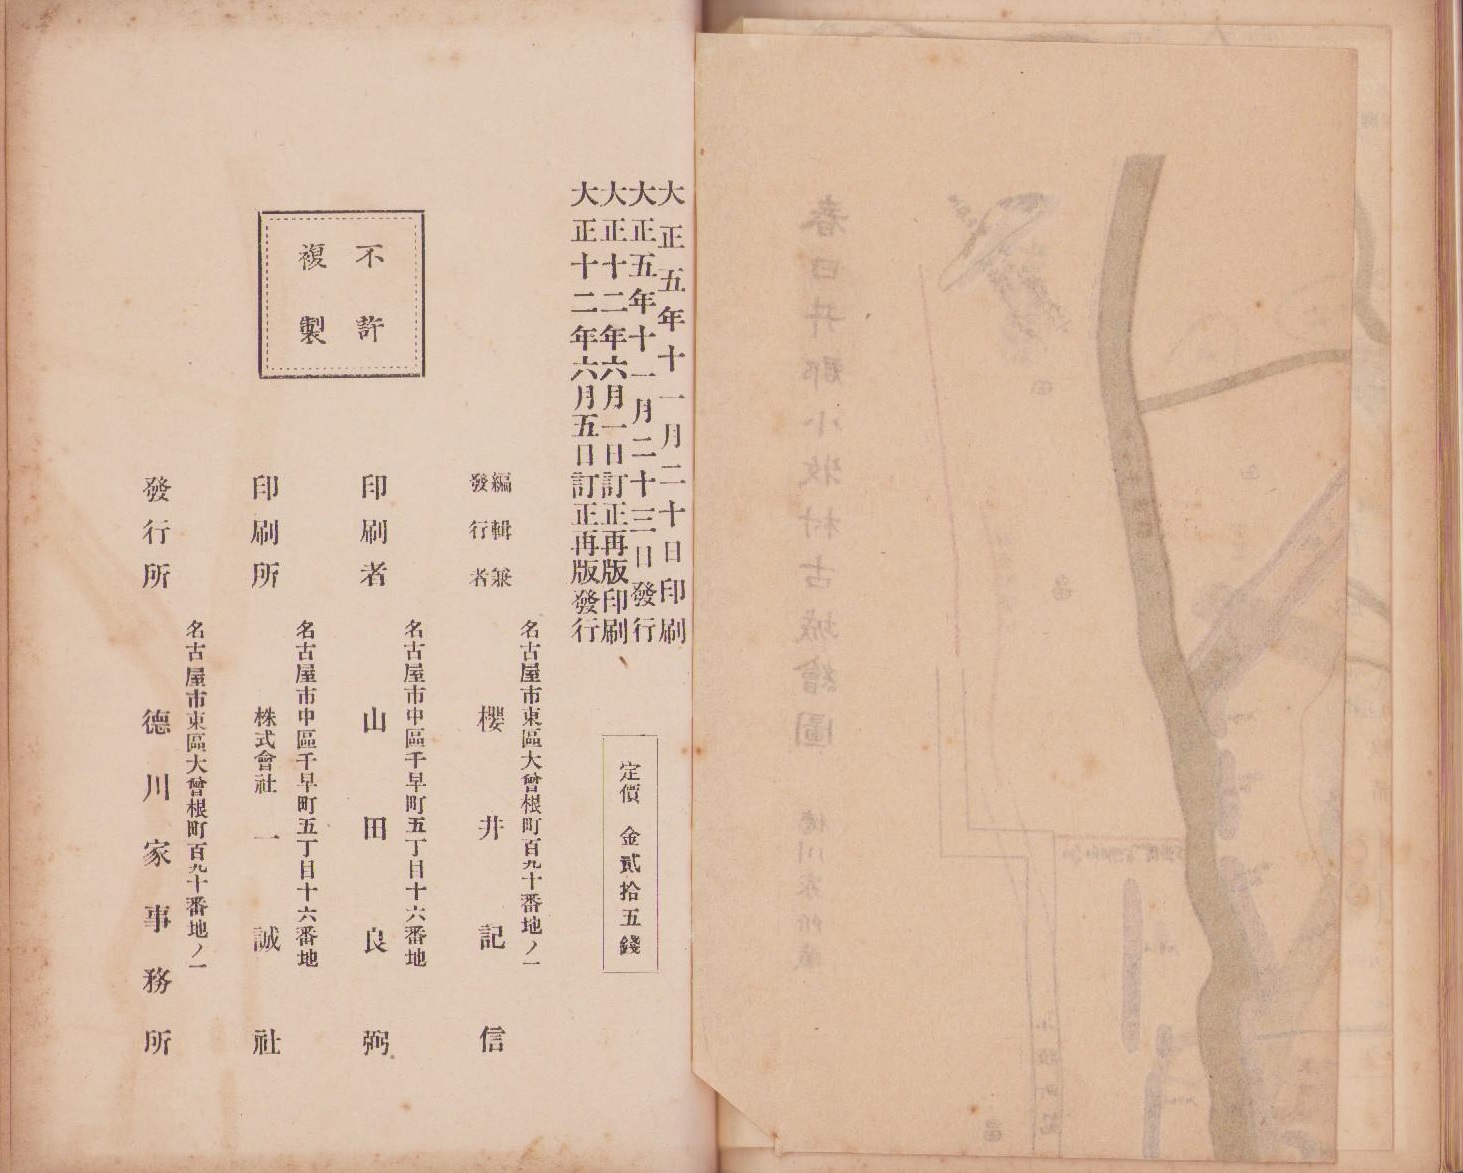 春日井郡小牧村古城繪圖
德川家所藏
大正五年十一月二十日印刷
大正五年十一月二十三日發行
大正十二年六月一日訂正再版印刷
大正十二年六月五日訂正再版發行
定價 金貳拾五錢
不許
複製
編輯兼
發行者
名古屋市東區大曾根町百九十番地ノ一
櫻井記信
印刷者
名古屋市中區千早町五丁目十六番地
山田良弼
印刷所
名古屋市中區千早町五丁目十六番地
株式會社一誠社
發行所
名古屋市東區大曾根町百九十番地ノ一
德川家事務所